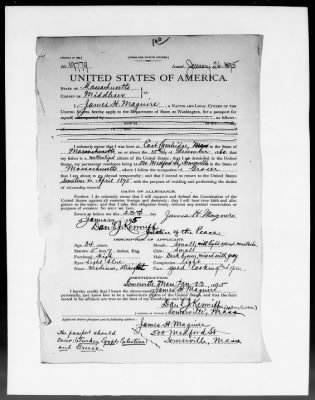 No. 19779 Issued January 26 1895
UNITED STATES OF AMERICA.
STATE OF Massachusetts
COUNTY OF Middlesex
I, James H. Maguire, A NATIVE AND LOYAL CITIZEN OF THE
UNITED STATES, hereby apply to the Department of State, at Washington, for a passport for
myself
I solemnly swear that I was born at East Cambridge, Mass in
Massachusetts, on or about the 15 day of December, 1860; that my
citizen of the United States; that I am domiciled in the United States,
my permanent residence being at Somerville in the State of
Massachusetts, where I follow the occupation of Grocer
that I am about to go abroad temporarily; and that I intend to return to the United States
in April 1895, with the purpose of residing and performing the duties
of citizenship therein.
OATH OF ALLEGIANCE.
Further, I do solemnly swear that I will support and defend the Constitution of the
United States against all enemies foreign and domestic; that I will bear true faith and alle-
giance to the same; and that I take this obligation freely, without any mental reservation or
purpose of evasion: So help me God.
Sworn to before me this 23rd day
January 1895 James H. Maguire
Justice of the Peace
DESCRIPTION OF APPLICANT.
Age: 34 years.
Stature: 5 feet 7
Forehead: high
Eyes: light blue
Nose: medium straight
Mouth: Small, with light mustache
Chin: Small
Hair: mixed with gray
Complexion: light
Face: good looking
IDENTIFICATION.
Somerville Mass Jan 23 1895
I hereby certify that I know the above-named James H. Maguire
personally, and know him to be a native-born citizen of the United States, and that the facts
stated in his affidavit are true to the best of my knowledge and belief.
Somerville, Mass
James H. Maguire
500 Medford St
Somerville, Mass
The passport should
cover Turkey, Egypt, Palestine
and Greece